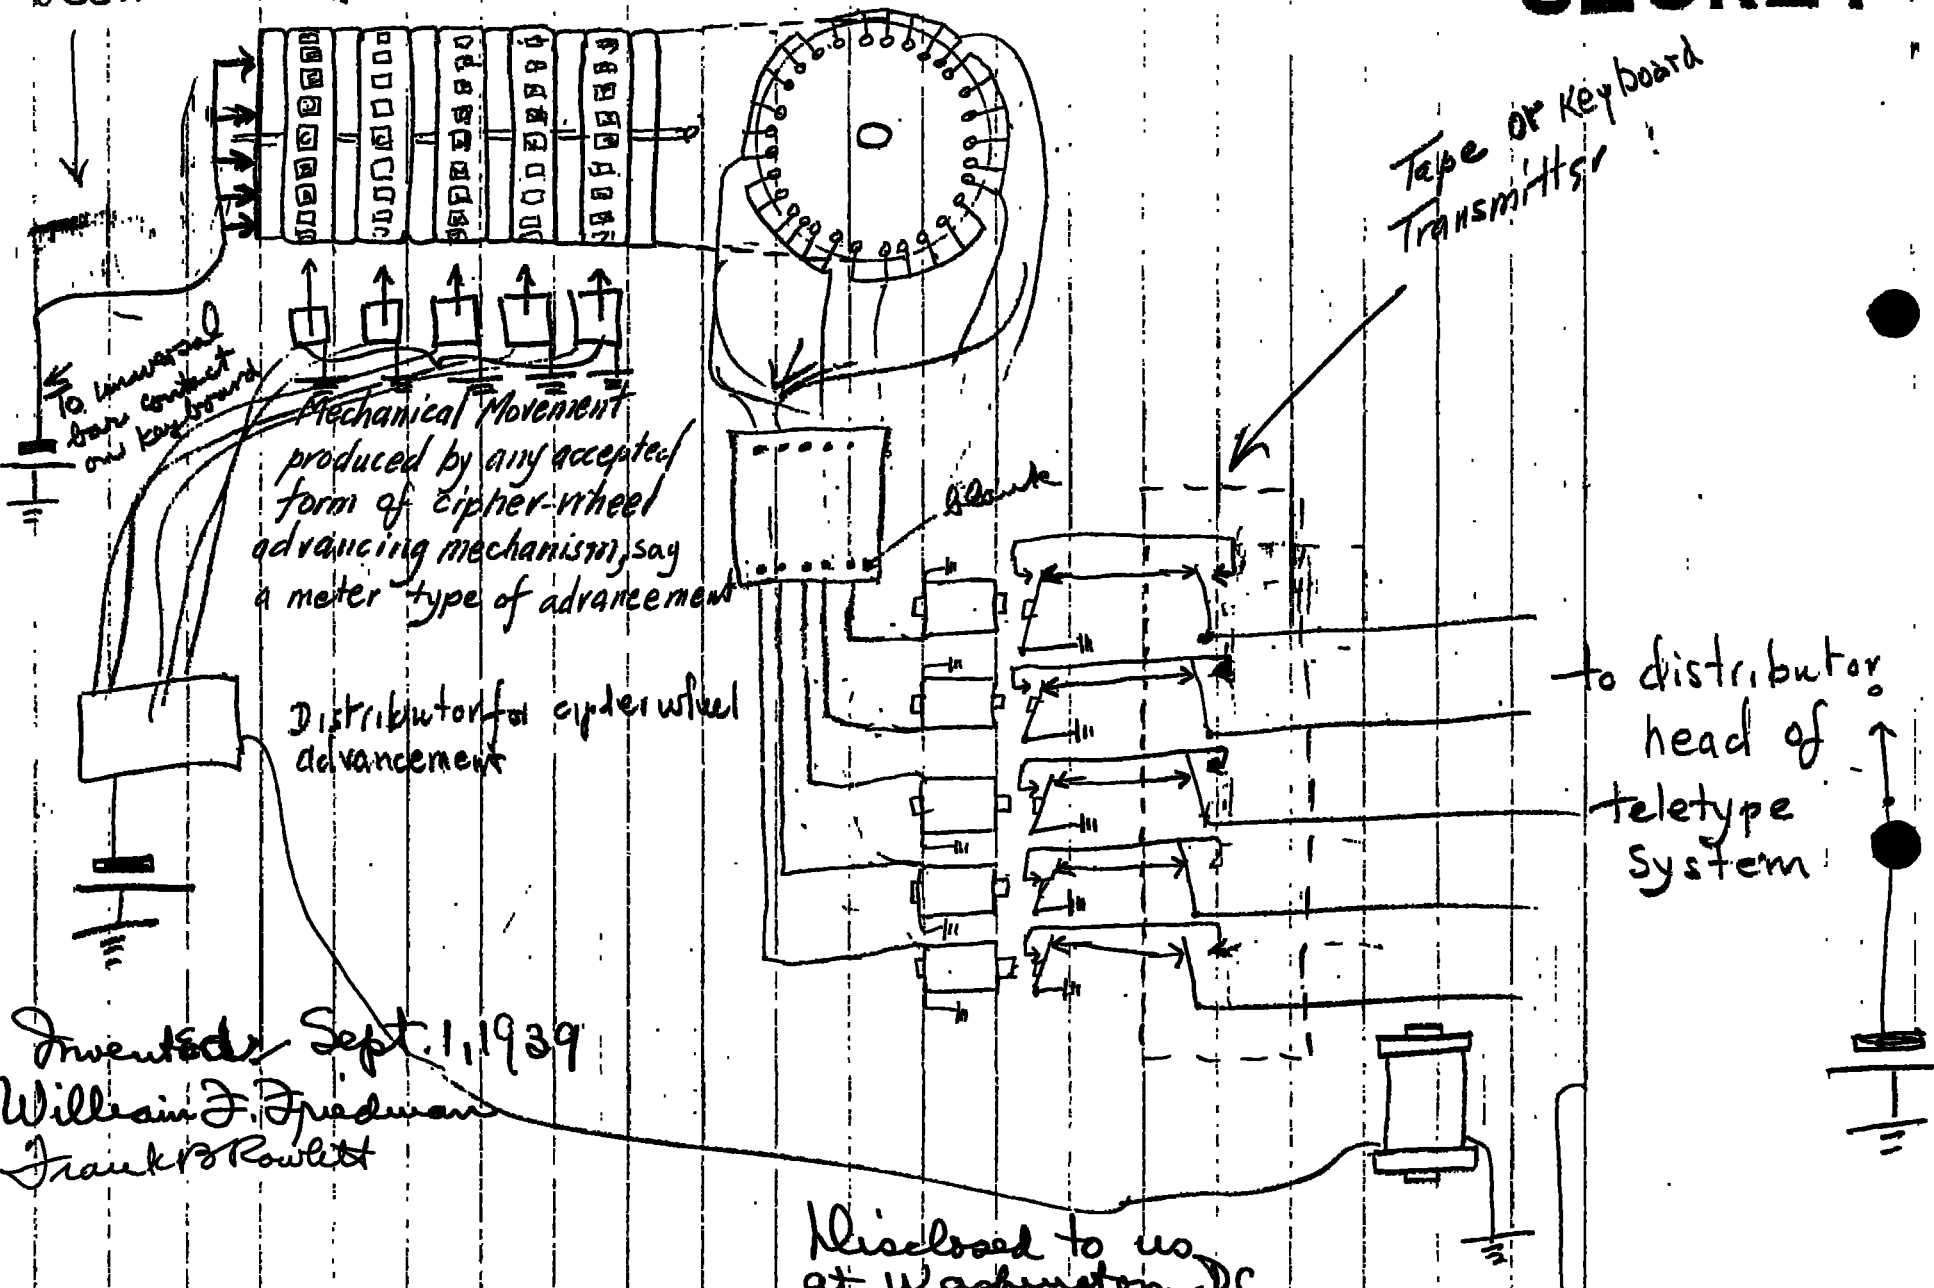 SECRET
Tape or Keyboard
Transmitter
To universal
bar contact
on keyboard
Mechanical Movement
produced by any accepted
form of cipher-wheel
advancing mechanism, say
a meter type of advancement
blank
Distributor for cipher wheel
advancement
to distributor
head of
teletype
system
Invented Sept. 1, 1939
William F. Friedman
Frank B Rowlett
Disclosed to us
at Washington DC